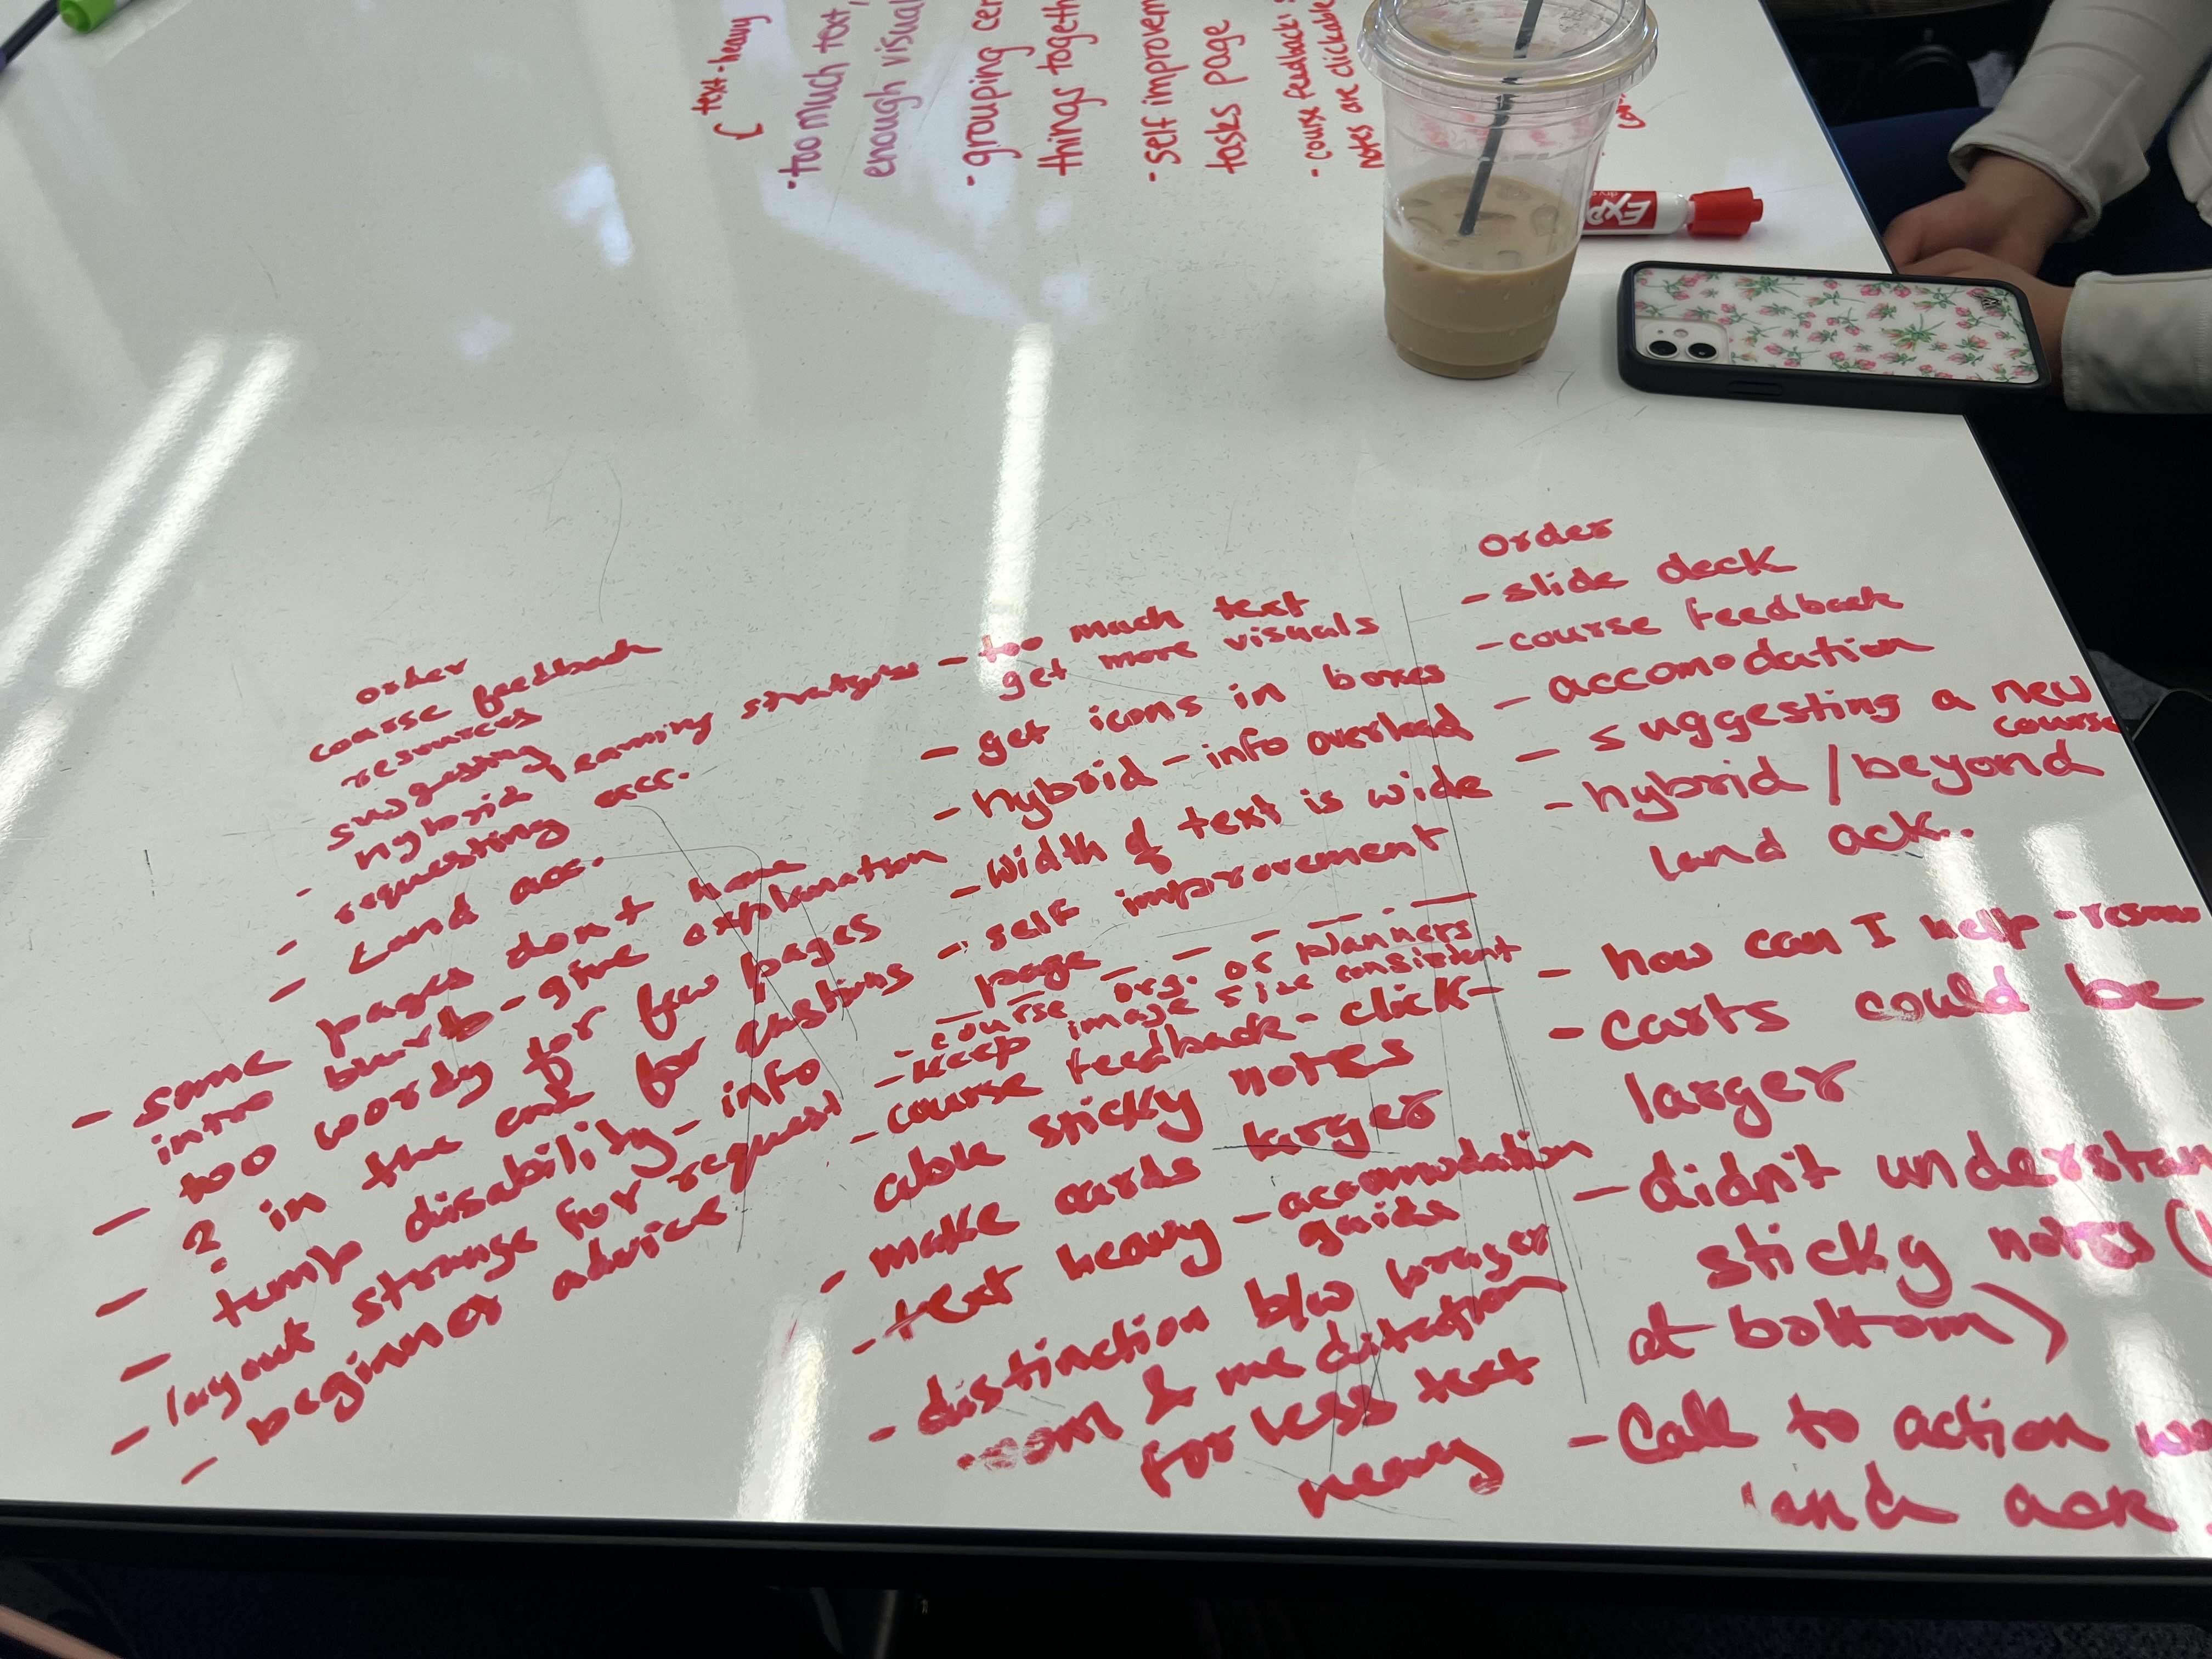 text-heavy
- too much text,
enough visual
- grouping
things togeth
- self improvem
tasks page
- course feedback:
notes are clickable
EXPO
order
course feedback
resources
suggesting
- hybrid learning strategies
requesting acc.
- Land acc.
- some pages don't have
intro blurb - give explanation
- too wordy for few pages
- ? in the end for questions
- temp disability - info
- layout strange for request
- beginner advice
- too much text
get more visuals
- get icons in boxes
- hybrid - info overload
- width of text is wide
- self improvement
page
- course org. or planners
- keep image size consistent
- course feedback - click-
able sticky notes
- make cards larger
- text heavy - accomodation
guide
- distinction b/w prayer
room & meditation
for less text
heavy
order
- slide deck
- course feedback
- accomodation
- suggesting a new
course
- hybrid / beyond
land ack..
- how can I help -
- carts could be
larger
- didn't understan
sticky notes (
at bottom)
- Call to action
land ack.